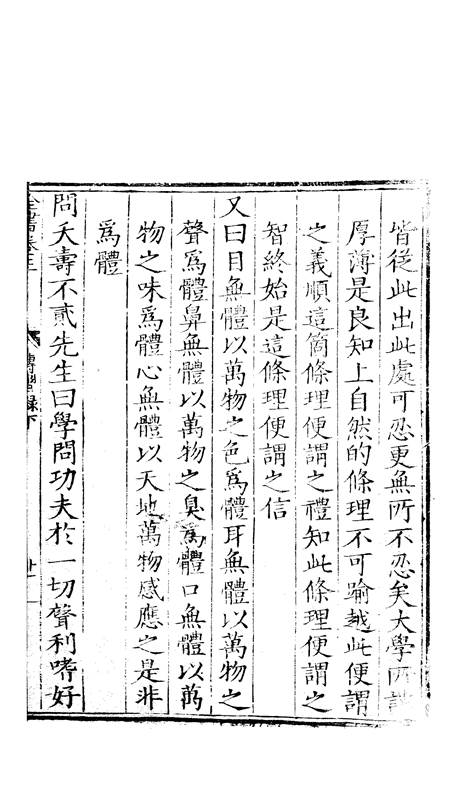 皆從此出此處可忍更無所不忍矣大學所謂
厚薄是良知上自然的條理不可踰越此便謂
之義順這箇條理便謂之禮知此條理便謂之
智終始是這條理便謂之信
又曰目無體以萬物之色為體耳無體以萬物之
聲為體鼻無體以萬物之臭為體口無體以萬
物之味為體心無體以天地萬物感應之是非
為體
問夭壽不貳先生曰學問功夫於一切聲利嗜好
全書卷三
傳習錄下